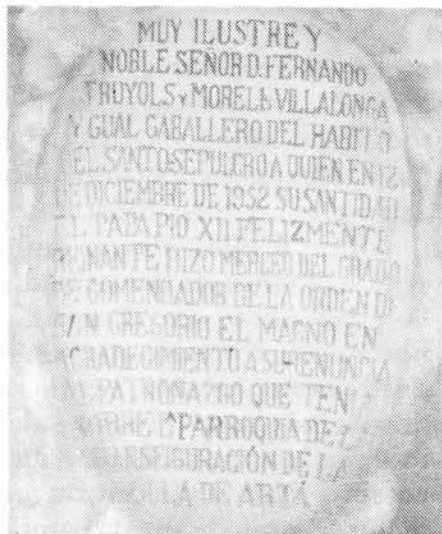 MUY ILUSTRE Y
NOBLE SEÑOR D. FERNANDO
TRUYOLS Y MORELL VILLALONGA
Y GUAL CABALLERO DEL HABITO
EL SANTO SEPULCRO A QUIEN EN 12
DE DICIEMBRE DE 1952 SU SANTIDAD
EL PAPA PIO XII FELIZMENTE
REINANTE HIZO MERCED DEL GRADO
DE COMENDADOR DE LA ORDEN DE
SAN GREGORIO EL MAGNO EN
AGRADECIMIENTO A SU RENUNCIA
PATRONAZGO QUE TENIA
SOBRE LA PARROQUIA DE LA
TRANSFIGURACIÓN DE LA
DE ARTÁ